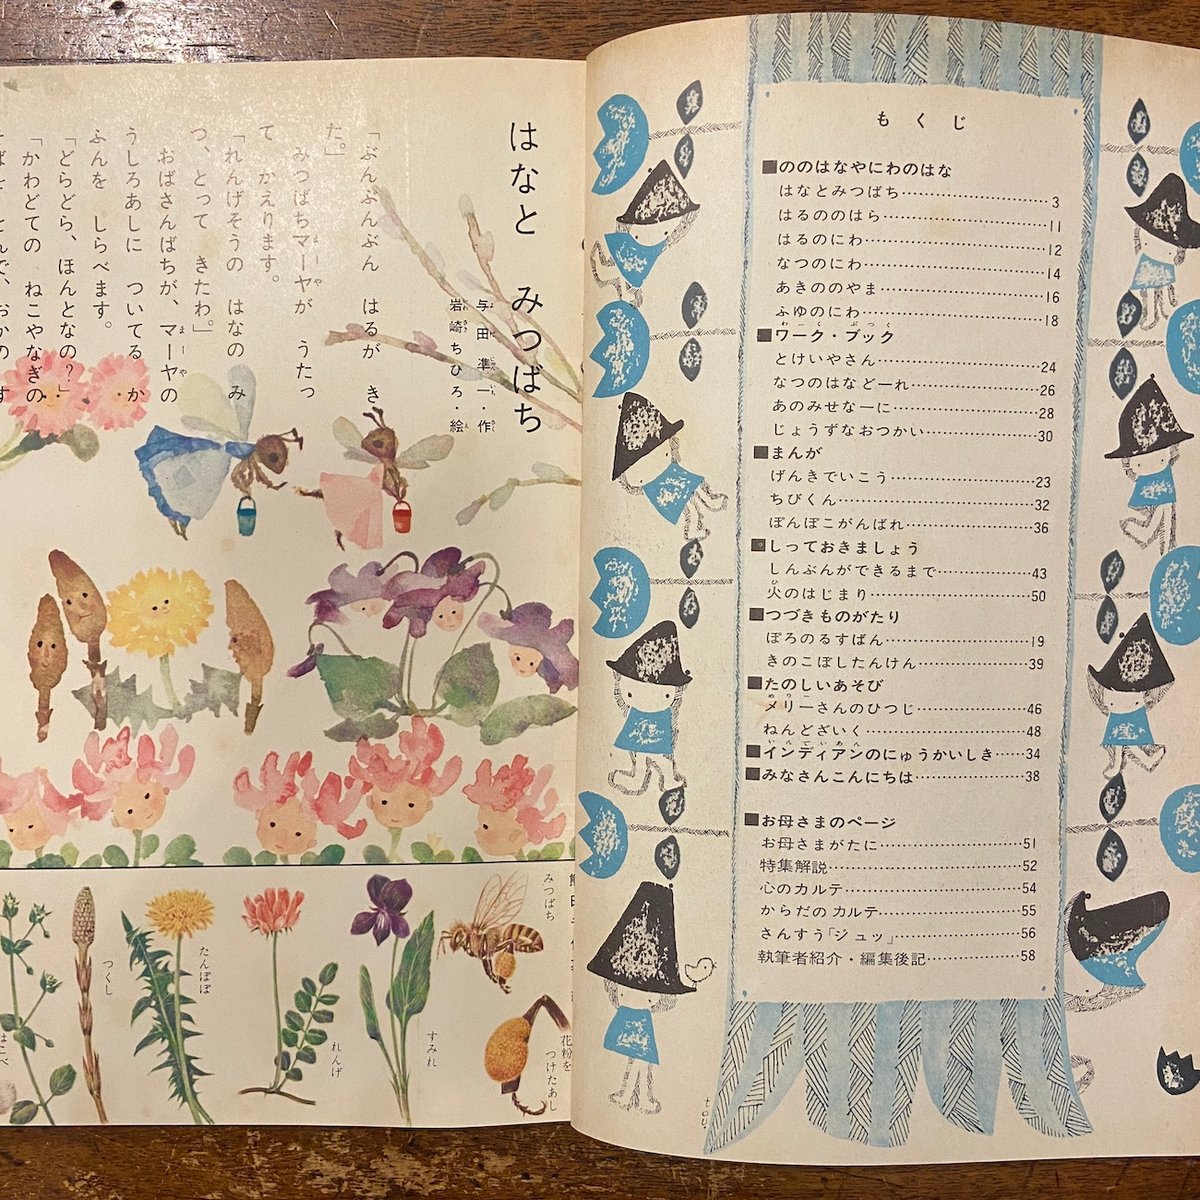 はなと みつばち
与田 凖一・作
岩崎ちひろ・絵
「ぶんぶんぶん はるが き
た。」
みつばちマーヤが うたっ
て かえります。
「れんげそうの はなの み
つ、とって きたわ。」
おばさんばちが、マーヤの
うしろあしに ついてる か
ふんを しらべます。
「どらどら、ほんとなの?」
「かわどての ねこやなぎの
みつばち
花粉を
つけたあし
すみれ
れんげ
たんぽぽ
つくし
はこべ
もくじ
■ののはなやにわのはな
はなとみつばち 3
はるののはら 11
はるのにわ 12
なつのにわ 14
あきののやま 16
ふゆのにわ 18
■ワーク・ブック
とけいやさん 24
なつのはなどーれ 26
あのみせなーに 28
じょうずなおつかい 30
■まんが
げんきでいこう 23
ちびくん 32
ぽんぽこがんばれ 36
■しっておきましょう
しんぶんができるまで 43
火のはじまり 50
■つづきものがたり
ぼろのるすばん 19
きのこぼしたんけん 39
■たのしいあそび
メリーさんのひつじ 46
ねんどざいく 48
■インディアンのにゅうかいしき 34
■みなさんこんにちは 38
■お母さまのページ
お母さまがたに 51
特集解説 52
心のカルテ 54
からだのカルテ 55
さんすう「ジュッ」 56
執筆者紹介・編集後記 58